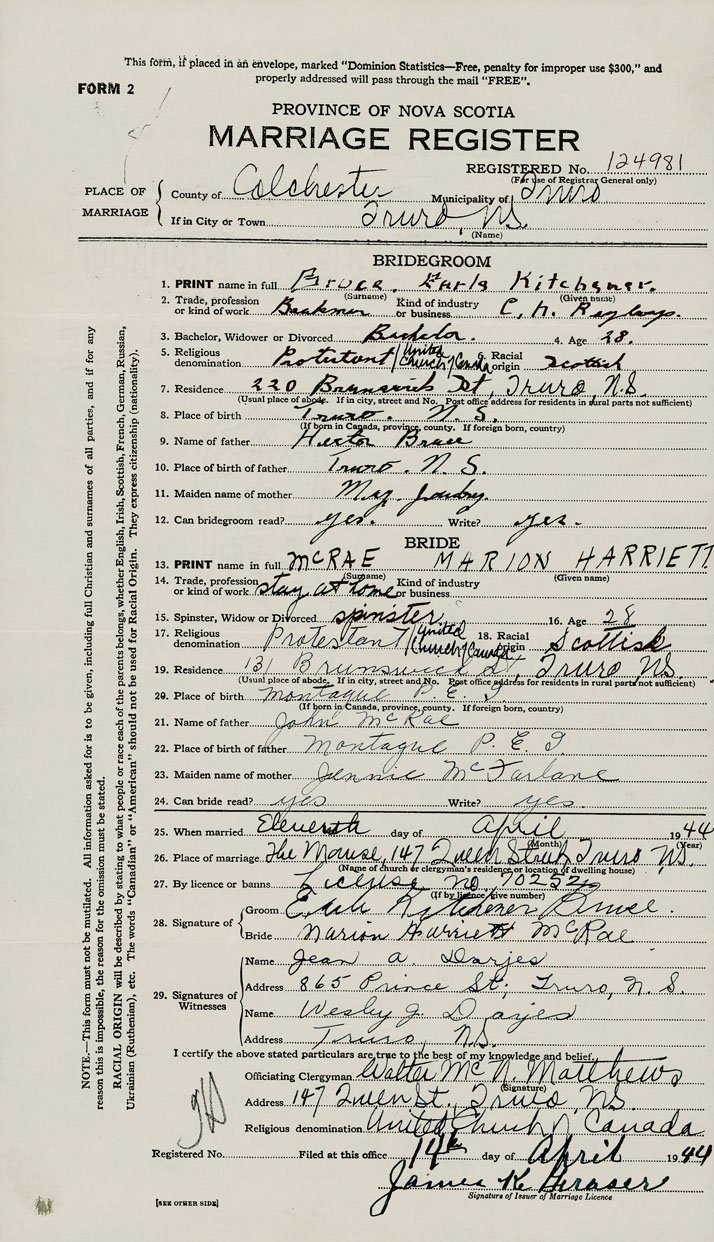 This form, if placed in an envelope, marked "Dominion Statistics—Free, penalty for improper use $300," and
properly addressed will pass through the mail "FREE".
FORM 2
PROVINCE OF NOVA SCOTIA
MARRIAGE REGISTER
REGISTERED No. 124981
(For use of Registrar General only)
PLACE OF MARRIAGE
County of Colchester Municipality of Truro
If in City or Town Truro, N.S.
(Name)
BRIDEGROOM
1. PRINT name in full Bruce. Earle Kitchener.
(Surname) (Given name)
2. Trade, profession or kind of work Brakman Kind of industry or business C. N. Railways.
3. Bachelor, Widower or Divorced Bachelor. 4. Age 28.
5. Religious denomination Protestant / United Church of Canada 6. Racial origin Scottish
7. Residence 220 Brunswick St, Truro, N.S.
(Usual place of abode. If in city, street and No. Post office address for residents in rural parts not sufficient)
8. Place of birth Truro. N.S.
(If born in Canada, province, county. If foreign born, country)
9. Name of father Hector Bruce
10. Place of birth of father Truro. N.S.
11. Maiden name of mother May
12. Can bridegroom read? yes. Write? yes.
BRIDE
13. PRINT name in full McRAE MARION HARRIETT
(Surname) (Given name)
14. Trade, profession or kind of work stay at home Kind of industry or business
15. Spinster, Widow or Divorced spinster 16. Age 28
17. Religious denomination Protestant / United Church of Canada 18. Racial origin Scottish
19. Residence 131 Brunswick St, Truro N.S.
(Usual place of abode. If in city, street and No. Post office address for residents in rural parts not sufficient)
20. Place of birth Montague P.E.I
(If born in Canada, province, county. If foreign born, country)
21. Name of father John McRae
22. Place of birth of father Montague P.E.I.
23. Maiden name of mother Jennie McFarlane
24. Can bride read? yes Write? yes.
25. When married Eleventh day of April 1944
(Month) (Year)
26. Place of marriage The Manse, 147 Queen Street, Truro N.S.
(Name of church or clergyman's residence or location of dwelling house)
27. By licence or banns License no. 70252
(If by licence give number)
28. Signature of
Groom Earle Kitchener Bruce.
Bride Marion Harriett McRae
29. Signatures of Witnesses
Name Jean A
Address 865 Prince St; Truro, N.S.
Name Wesley J.
Address Truro, N.S.
I certify the above stated particulars are true to the best of my knowledge and belief.
Officiating Clergyman Walter McN. Matthews
(Signature)
Address 147 Queen St., Truro, N.S.
Religious denomination United Church of Canada
Registered No. Filed at this office 14th day of April 1944
James K. Fraser
Signature of Issuer of Marriage Licence
[SEE OTHER SIDE]
NOTE.—This form must not be mutilated. All information asked for is to be given, including full Christian and surnames of all parties, and if for any
reason this is impossible, the reason for the omission must be stated.
RACIAL ORIGIN will be described by stating to what people or race each of the parents belongs, whether English, Irish, Scottish, French, German, Russian,
Ukrainian (Ruthenian), etc. The words "Canadian" or "American" should not be used for Racial Origin. They express citizenship (nationality).